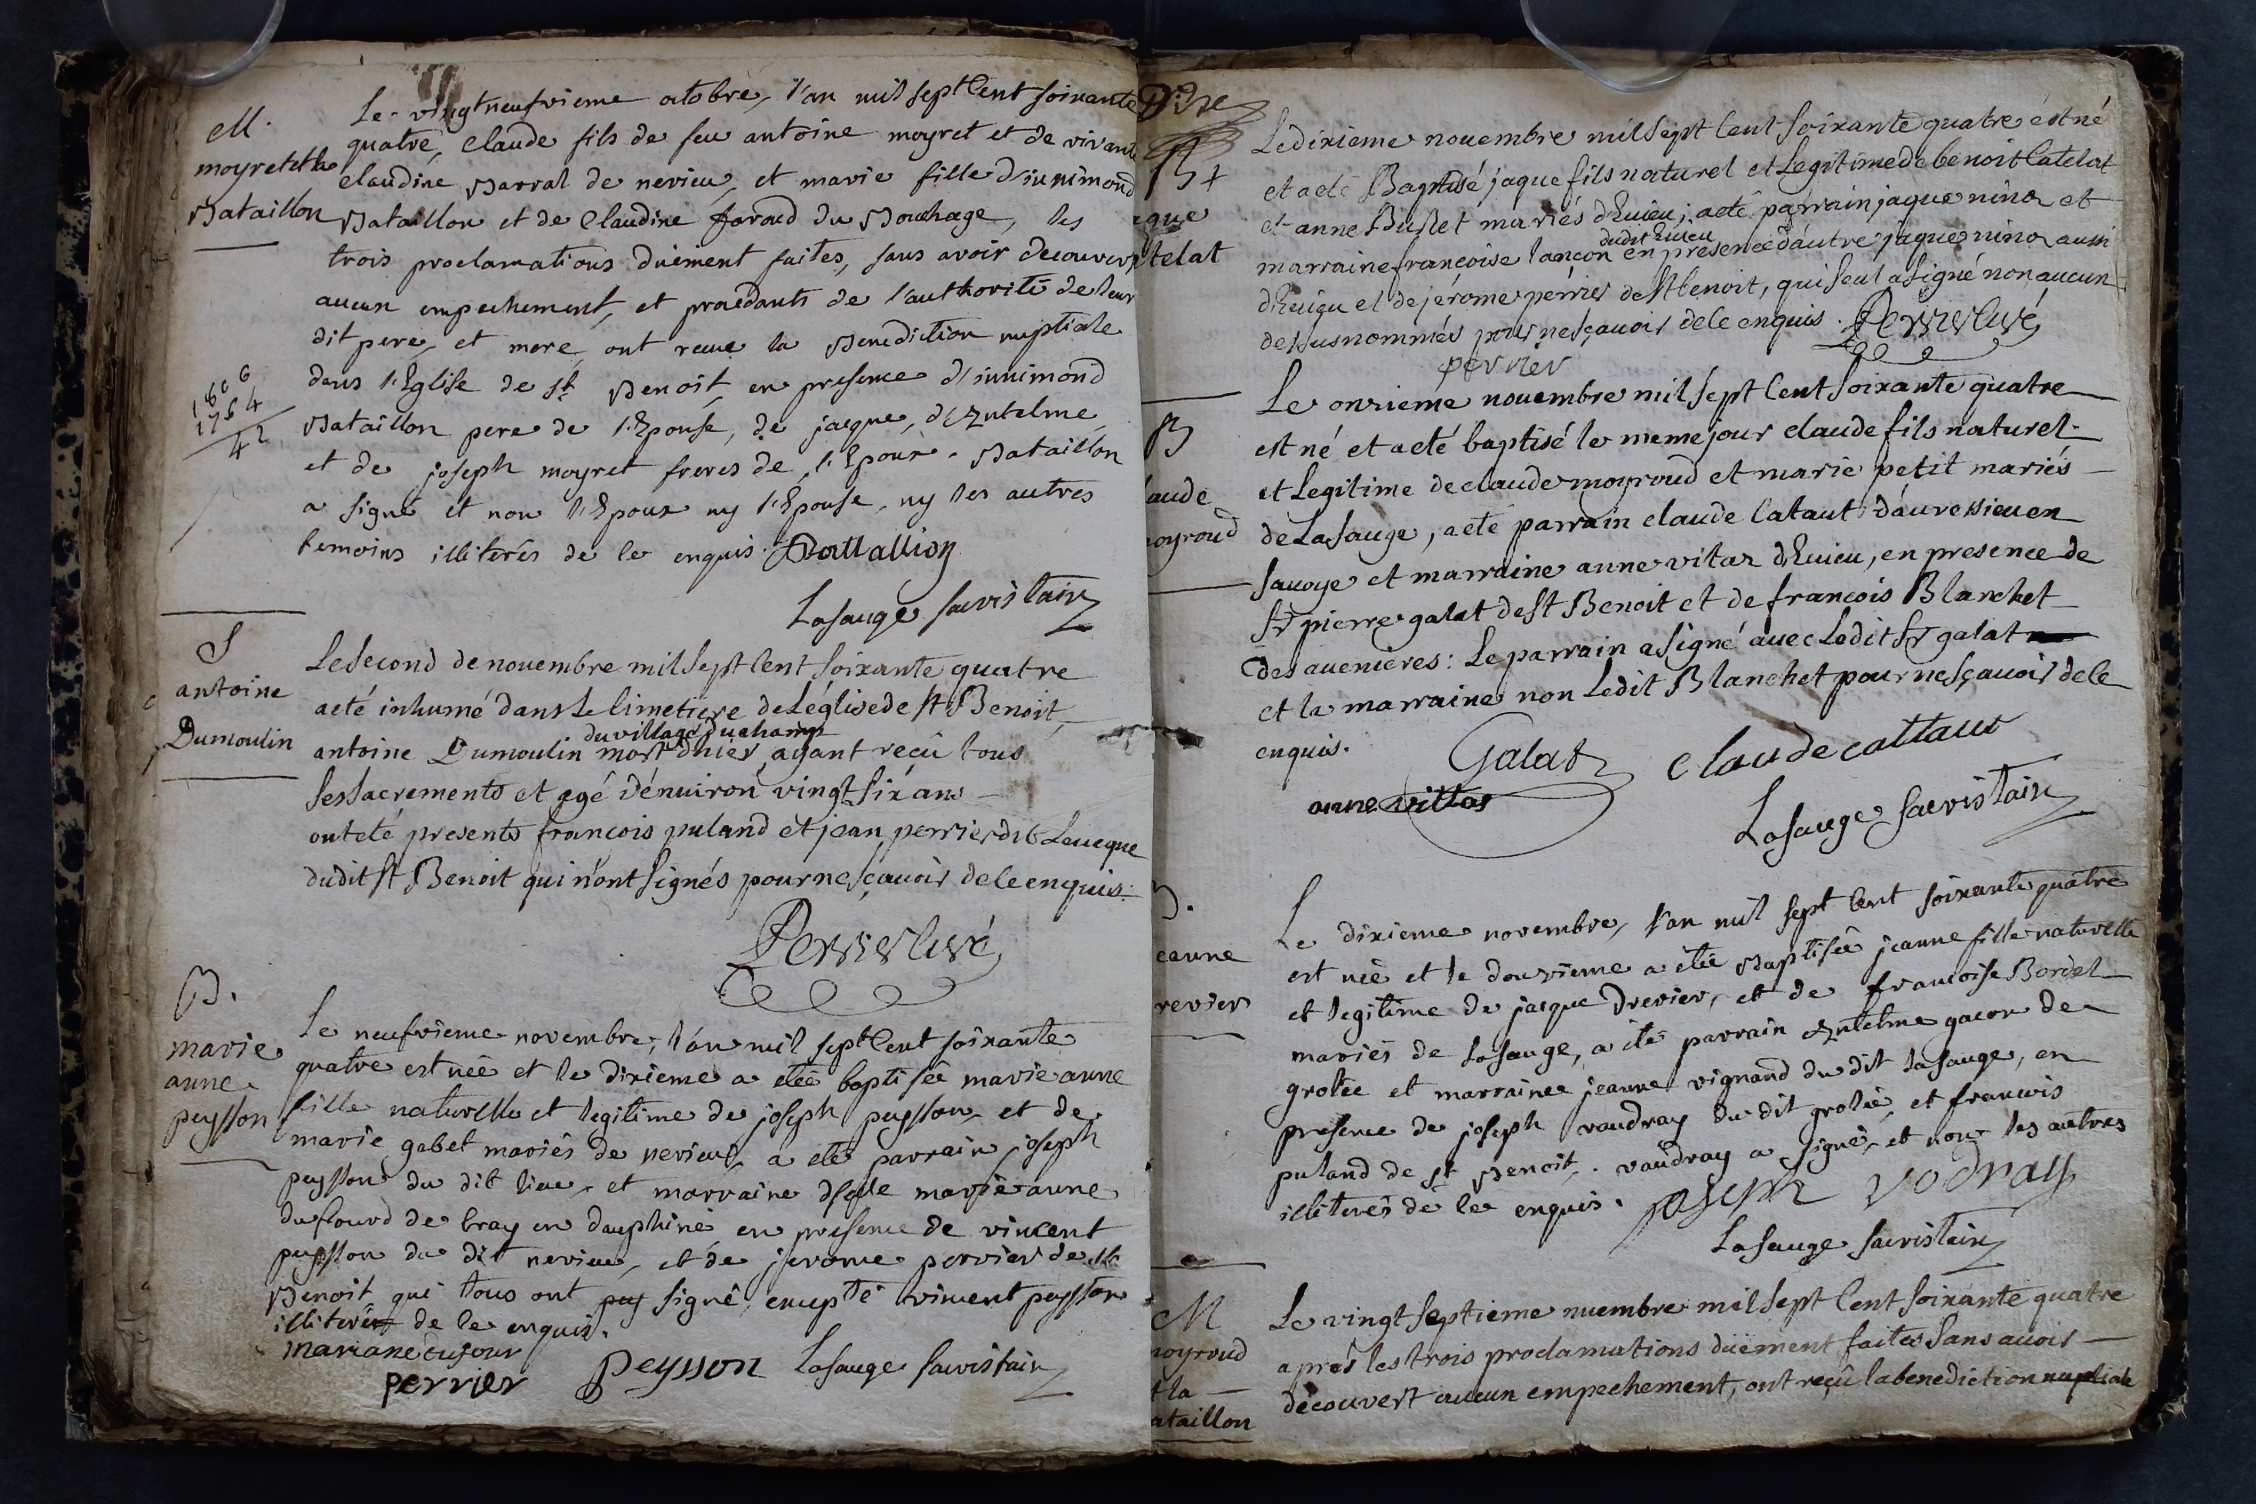 M.
moyret et la
Bataillon
Le vingt neufvieme octobre, l'an mil sept Cent soixante
quatre, Claude fils de feu antoine moyret et de vivante
claudine Barral de nevieu, et marie fille d'innimond
Bataillon et de Claudine foroud du Bouchage, les
trois proclamations duëment faites, sans avoir decouvert
aucun empechement, et procedants de l'authorité de leur
dit pere, et mere, ont recue la Benediction nuptiale
dans l'Eglise de st Benoit, en presence d'innimond
Bataillon pere de l'Epouse, de jacque, d'Entelme,
et de joseph moyret freres de l'Epoux. Bataillon
a signé et non l'Epoux ny l'Epouse, ny les autres
temoins illiterés de ce enquis. Battallion
Lasauge sacristain
1806
1764
42
S
antoine
Dumoulin
Le second de novembre mil sept Cent soixante quatre
a eté inhumé dans Le Cimetiere de L'église de st Benoit,
du village du champ
antoine Dumoulin mort d'hier, ayant reçû tous
ses sacrements et agé d'énuiron vingt six ans
ont eté presents francois puland et jean perrier dit Leueque
dudit st Benoit qui n'ont signés pour ne sçauoir de ce enquis.
Perrier curé
B.
marie
anne
peysson
Le neufvieme novembre, l'an mil sept Cent soixante
quatre est née et le dixieme a eté baptisée marie anne
fille naturelle et legitime de joseph peysson, et de
marie gabet mariés de nevieu, a eté parrain joseph
peysson du dit lieu, et marraine dselle marie anne
dufourd de bray en dauphiné, en presence de vincent
peysson du dit nevieu, et de jerome perrier de st
Benoit, qui tous ont signé, excepté vincent peysson
illiteré de ce enquis.
mariane dufour
perrier Peysson Lasauge sacristain
B +
aque
telat
Le dixieme nouembre mil sept Cent soixante quatre ést né
et a eté Baptisé jaque fils naturel et Legitime de benoit Catelat
et anne Buset mariés d'Euieu; a eté parrain jaque nino et
dudit Euieu
marraine françoise lançon en presence d'autre jaque nino aussi
d'Euieu et de jérome perrier de st benoit, qui seul a signé non aucun
des susnommés pour ne sçauoir de ce enquis. Perrier curé
perrier
B
laude
oyroud
Le onzieme nouembre mil sept Cent soixante quatre
est né et a eté baptisé le meme jour claude fils naturel
et Legitime de claude moyroud et marie petit mariés
de La sauge, a eté parrain claude Cataut d'auressieu en
sauoye et marraine anne vitaz d'Euieu, en presence de
sr pierre galat de st Benoit et de francois Blanchet
des auenieres: Le parrain a signé auec Ledit sr galat
et la marraine non Ledit Blanchet pour ne sçauoir de ce
enquis.
Galat claude cattaus
anne vittas
Lasauge sacristain
B.
eanne
revier
Le dixieme novembre, l'an mil sept Cent soixante quatre
est née et le douzieme a eté Baptisée jeanne fille naturelle
et legitime de jacque Drevier, et de francoise Bordel
mariés de lasauge, a eté parrain Entelme gacon de
grolée et marraine jeanne vignand du dit lasauge, en
presence de joseph vaudray du dit grolée, et francois
puland de st Benoit. vaudray a signé, et non les autres
illiterés de ce enquis. Joseph Vodray
Lasauge sacristain
M
oyroud
t la
ataillon
Le vingt septieme nuembre mil sept Cent soixante quatre
apres les trois proclamations duëment faites sans auoir
découvert aucun empechement, ont reçû la benediction nuptiale